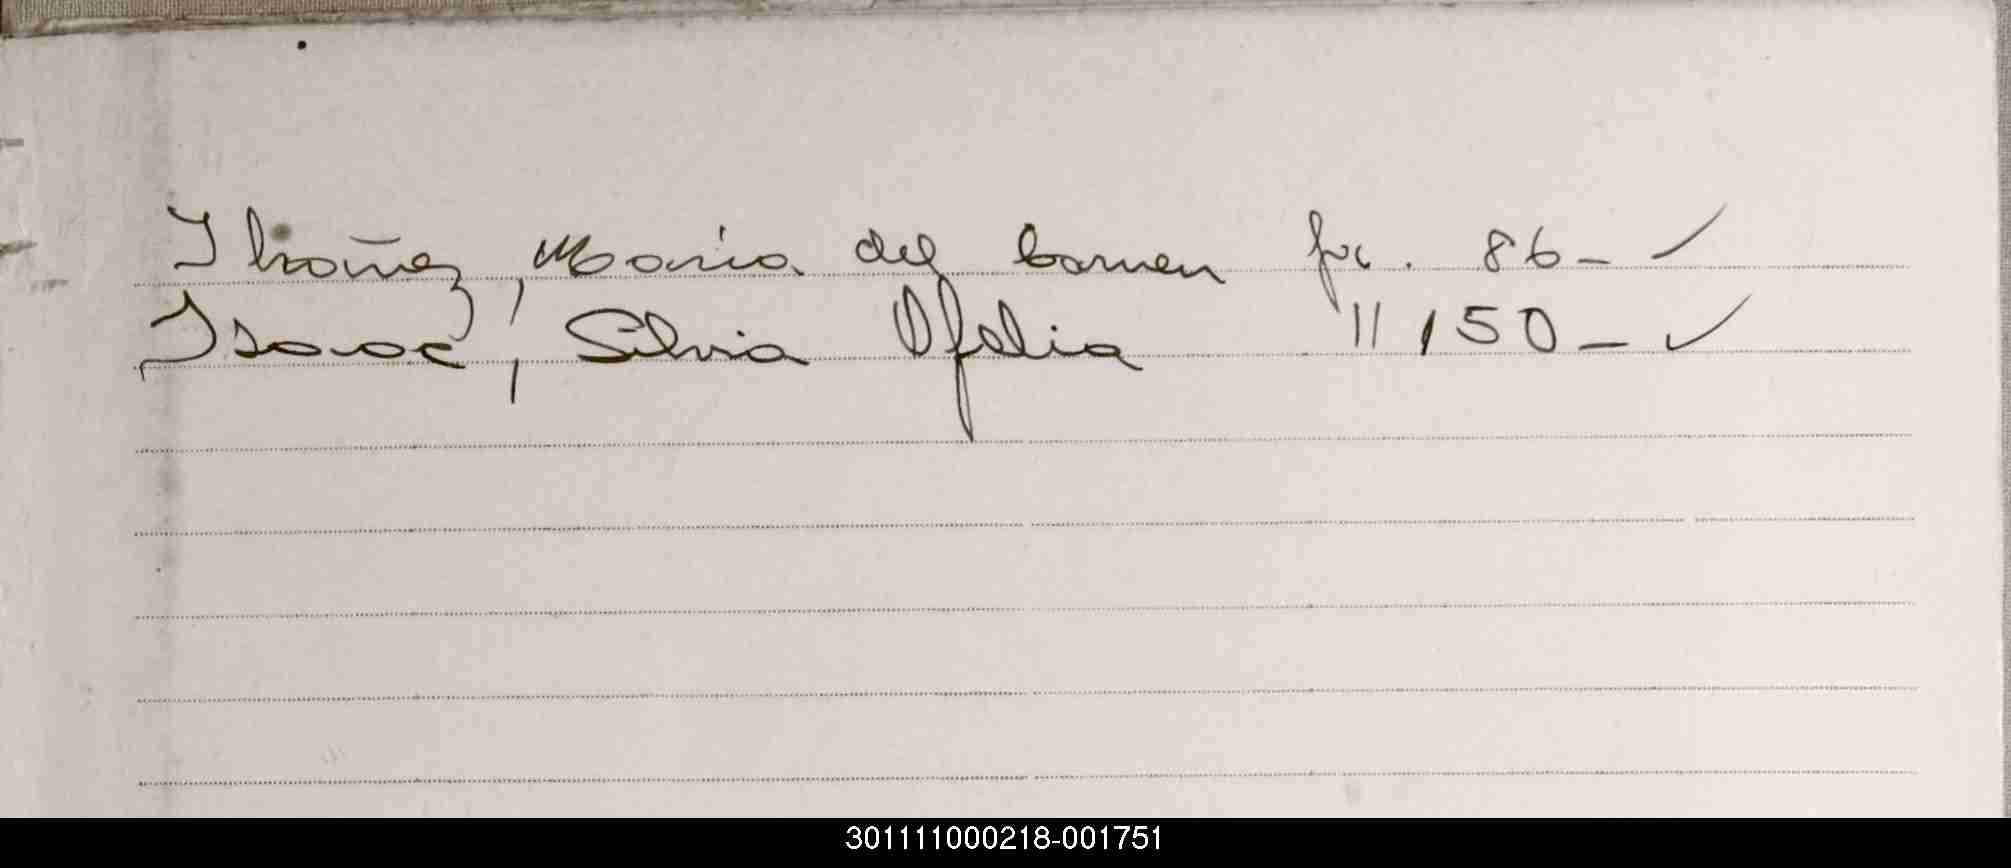 Ibañez, Maria del Carmen fol. 86- ✓
Isaac, Silvia Ofelia " 150- ✓
301111000218-001751